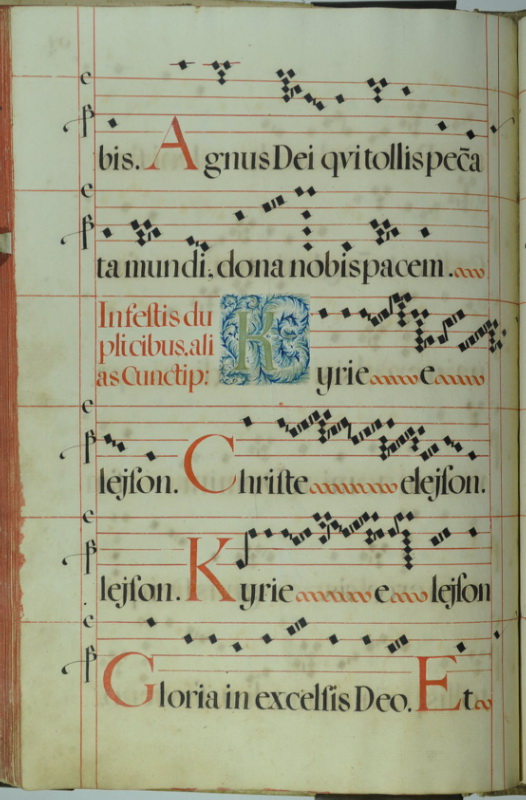 bis. Agnus Dei qvi tollis pec̄a
ta mundi, dona nobis pacem.
In festis du
plicibus, ali
as Cunctip:
Kyrie e
lejson. Christe elejson.
lejson. Kyrie e lejson
Gloria in excelsis Deo. Et